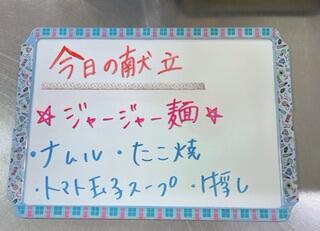 今日の献立
☆ジャージャー麺☆
・ナムル ・たこ焼
・トマト玉子スープ ・け浮し